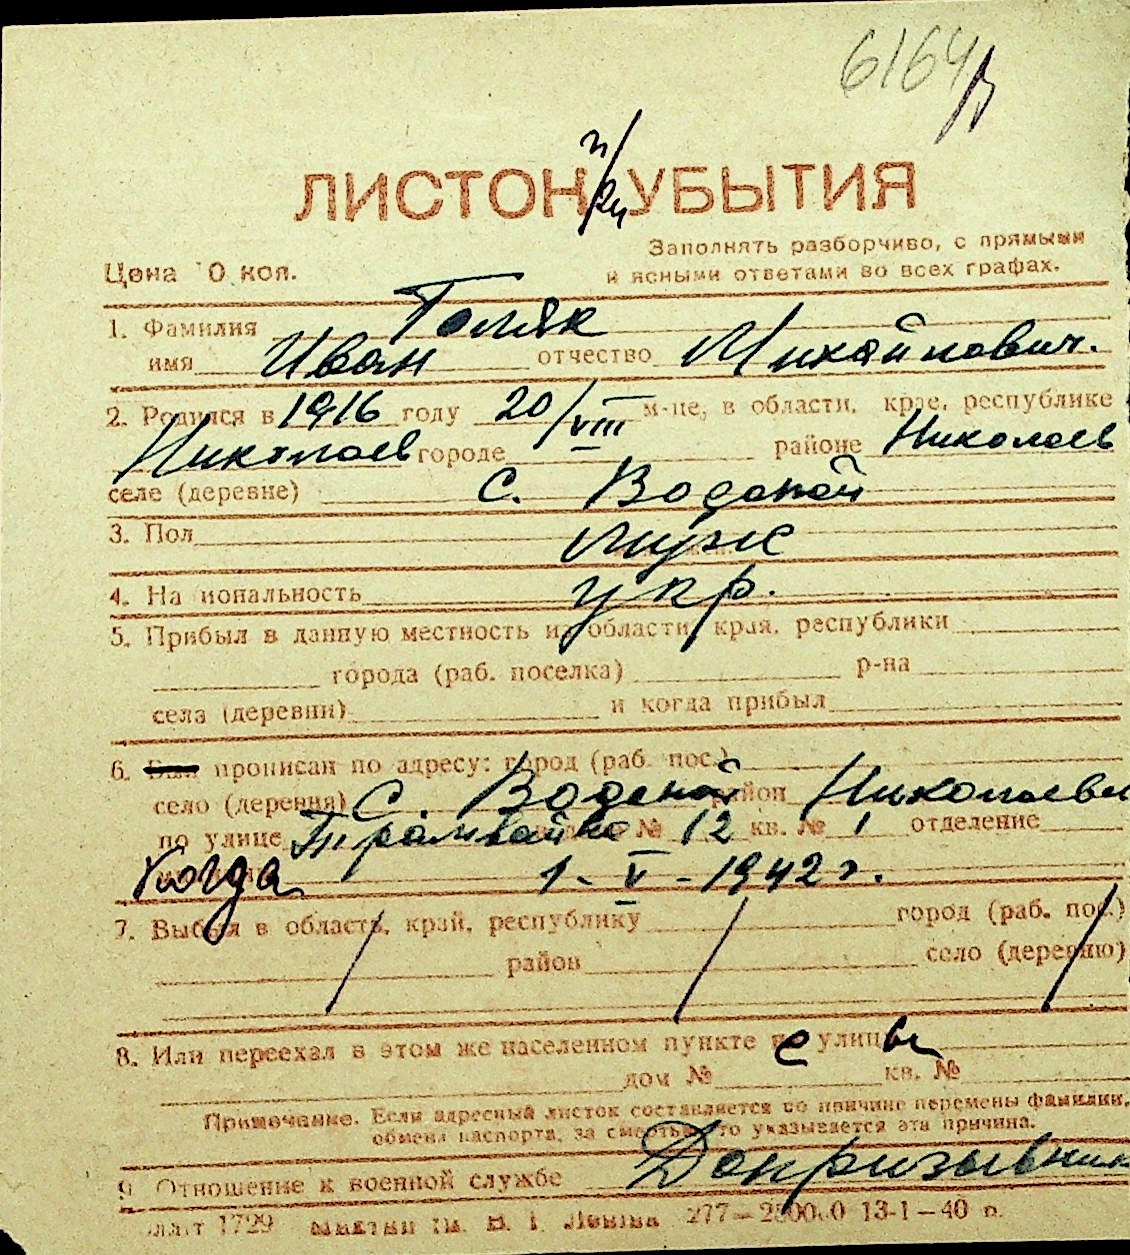 6164
ЛИСТОК УБЫТИЯ
Заполнять разборчиво, с прямыми
Цена 10 коп. и ясными ответами во всех графах.
1. Фамилия Голяк
имя Иван отчество Михайлович.
2. Родился в 1916 году 20/VIII м-це, в области, крае, республике
Николаев городе районе Николаев
селе (деревне) с. Водопой
3. Пол муж
4. Национальность укр.
5. Прибыл в данную местность из области, края, республики
города (раб. поселка) р-на
села (деревни) и когда прибыл
6. прописан по адресу: город (раб. пос.)
село (деревня) С. Водопой район Николаевск
по улице Трамвайна № 12 кв. № 1 отделение
Когда 1-V-1942 г.
7. Выбыл в область, край, республику город (раб. пос.)
район село (деревню)
8. Или переехал в этом же населенном пункте с улицы
дом № кв. №
Примечание. Если адресный листок составляется по причине перемены фамилии,
обмена паспорта, за смертью, то указывается эта причина.
9. Отношение к военной службе Допризывник
1729 им. В. И. Ленина 277— 13-1-40 г.